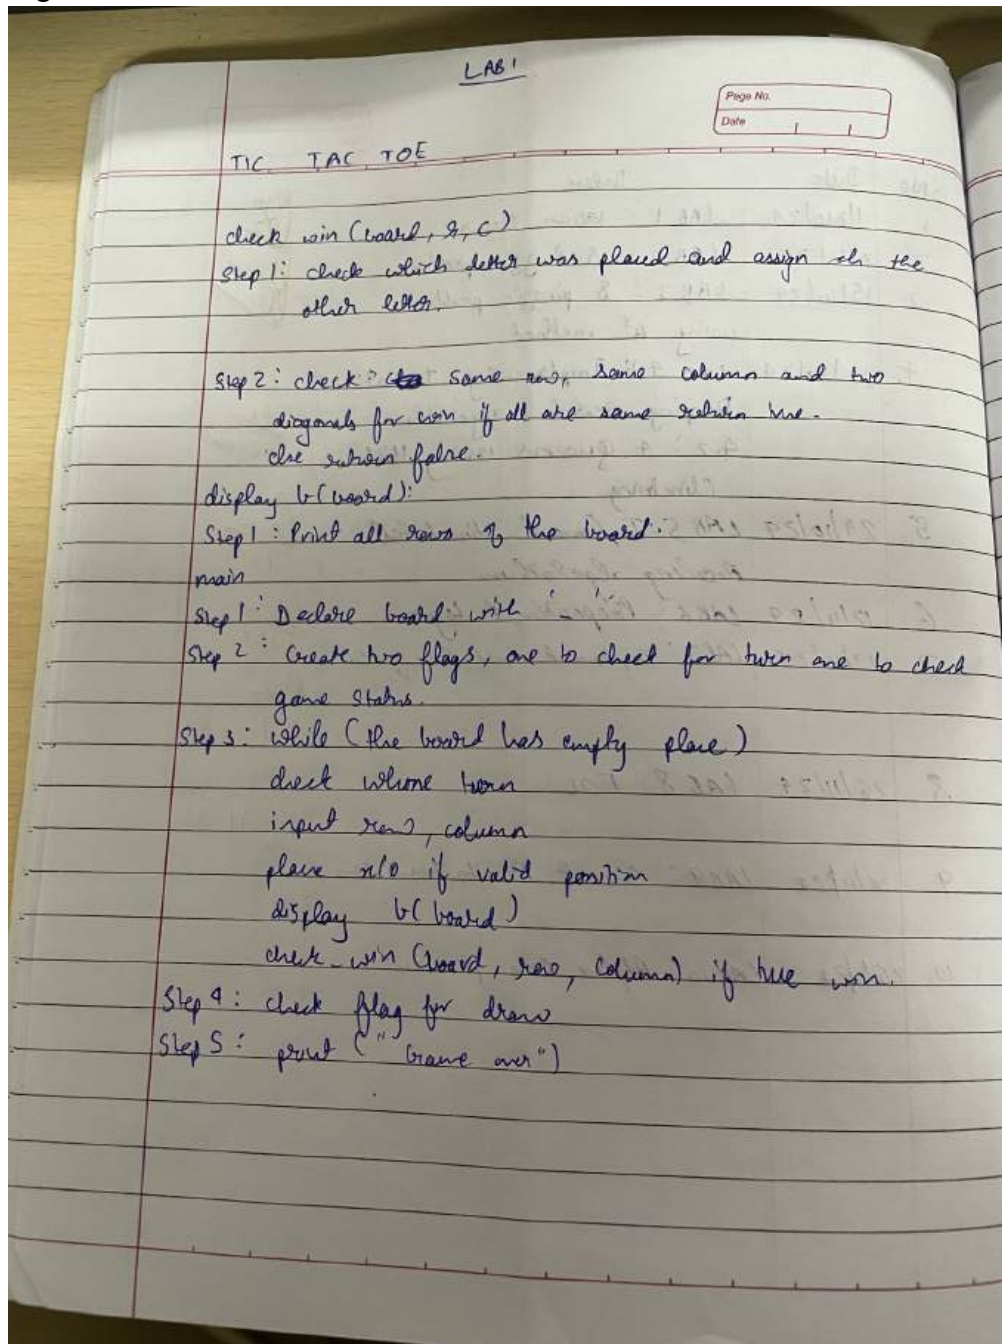 LAB 1
Page No.
Date
TIC TAC TOE
check win (board, r, c)
Step 1: check which letter was placed and assign ch the
other letter.
Step 2: check: same row, same column and two
diagonals for win if all are same return true.
else return false.
display b(board):
Step 1: Print all rows of the board.
main
Step 1: Declare board with -
Step 2: Create two flags, one to check for turn one to check
game status.
Step 3: while (the board has empty place)
check whose turn
input row, column
place x/o if valid position
display b(board)
check_win (board, row, column) if true win.
Step 4: check flag for draw
Step 5: print ("Game over")